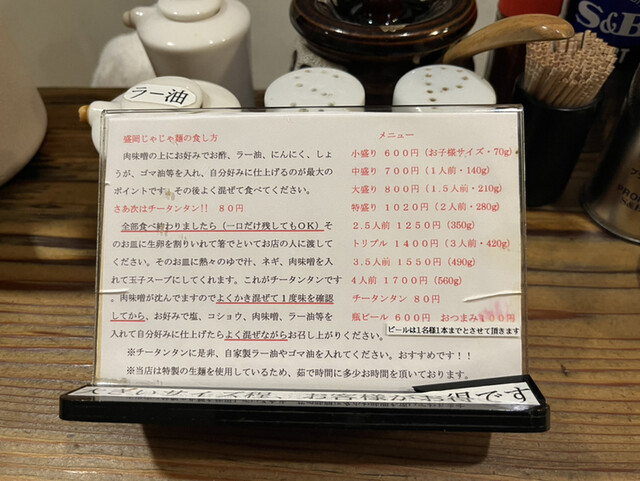 S&B
ラー油
盛岡じゃじゃ麺の食し方
肉味噌の上にお好みでお酢、ラー油、にんにく、しょ
うが、ゴマ油等を入れ、自分好みに仕上げるのが最大の
ポイントです。その後よく混ぜて食べてください。
さあ次はチータンタン!! 80円
全部食べ終わりましたら（一口だけ残してもOK）そ
のお皿に生卵を割りいれて箸でといてお店の人に渡して
ください。そのお皿に熱々のゆで汁、ネギ、肉味噌を入
れて玉子スープにしてくれます。これがチータンタンです
。肉味噌が沈んでますのでよくかき混ぜて1度味を確認
してから、お好みで塩、コショウ、肉味噌、ラー油等を
入れて自分好みに仕上げたらよく混ぜながらお召し上がりください。
※チータンタンに是非、自家製ラー油やゴマ油を入れてください。おすすめです！！
※当店は特製の生麺を使用しているため、茹で時間に多少お時間を頂いております。
メニュー
小盛り 600円（お子様サイズ・70g）
中盛り 700円（1人前・140g）
大盛り 800円（1.5人前・210g）
特盛り 1020円（2人前・280g）
2.5人前 1250円（350g）
トリプル 1400円（3人前・420g）
3.5人前 1550円（490g）
4人前 1700円（560g）
チータンタン 80円
瓶ビール 600円 おつまみ100円
ビールは1名様1本までとさせて頂きます
サイズ程、お客様がお得です